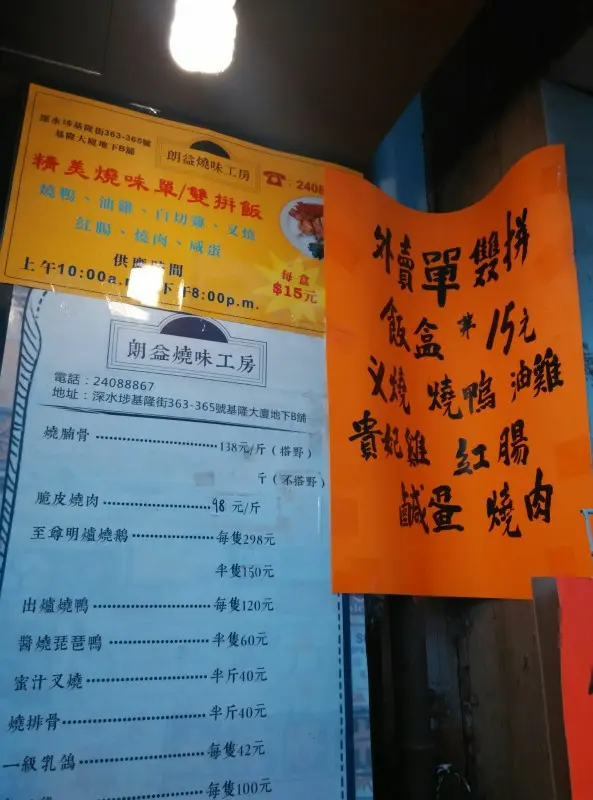 深水埗基隆街363-365號
基隆大廈地下B舖
朗益燒味工房
☎: 2408
精美燒味單/雙拼飯
燒鴨、油雞、白切雞、叉燒
紅腸、燒肉、咸蛋
供應時間
上午10:00a.m 下午8:00p.m.
每盒
$15元
朗益燒味工房
電話:24088867
地址:深水埗基隆街363-365號基隆大廈地下B舖
燒腩骨 138元/斤(搭野)
斤(不搭野)
脆皮燒肉 98 元/斤
至尊明爐燒鵝 每隻298元
半隻150元
出爐燒鴨 每隻120元
醬燒琵琶鴨 半隻60元
蜜汁叉燒 半斤40元
燒排骨 半斤40元
一級乳鴿 每隻42元
每隻100元
外賣單雙拼
飯盒 15元
义燒 燒鴨 油雞
貴妃雞 紅腸
鹹蛋 燒肉